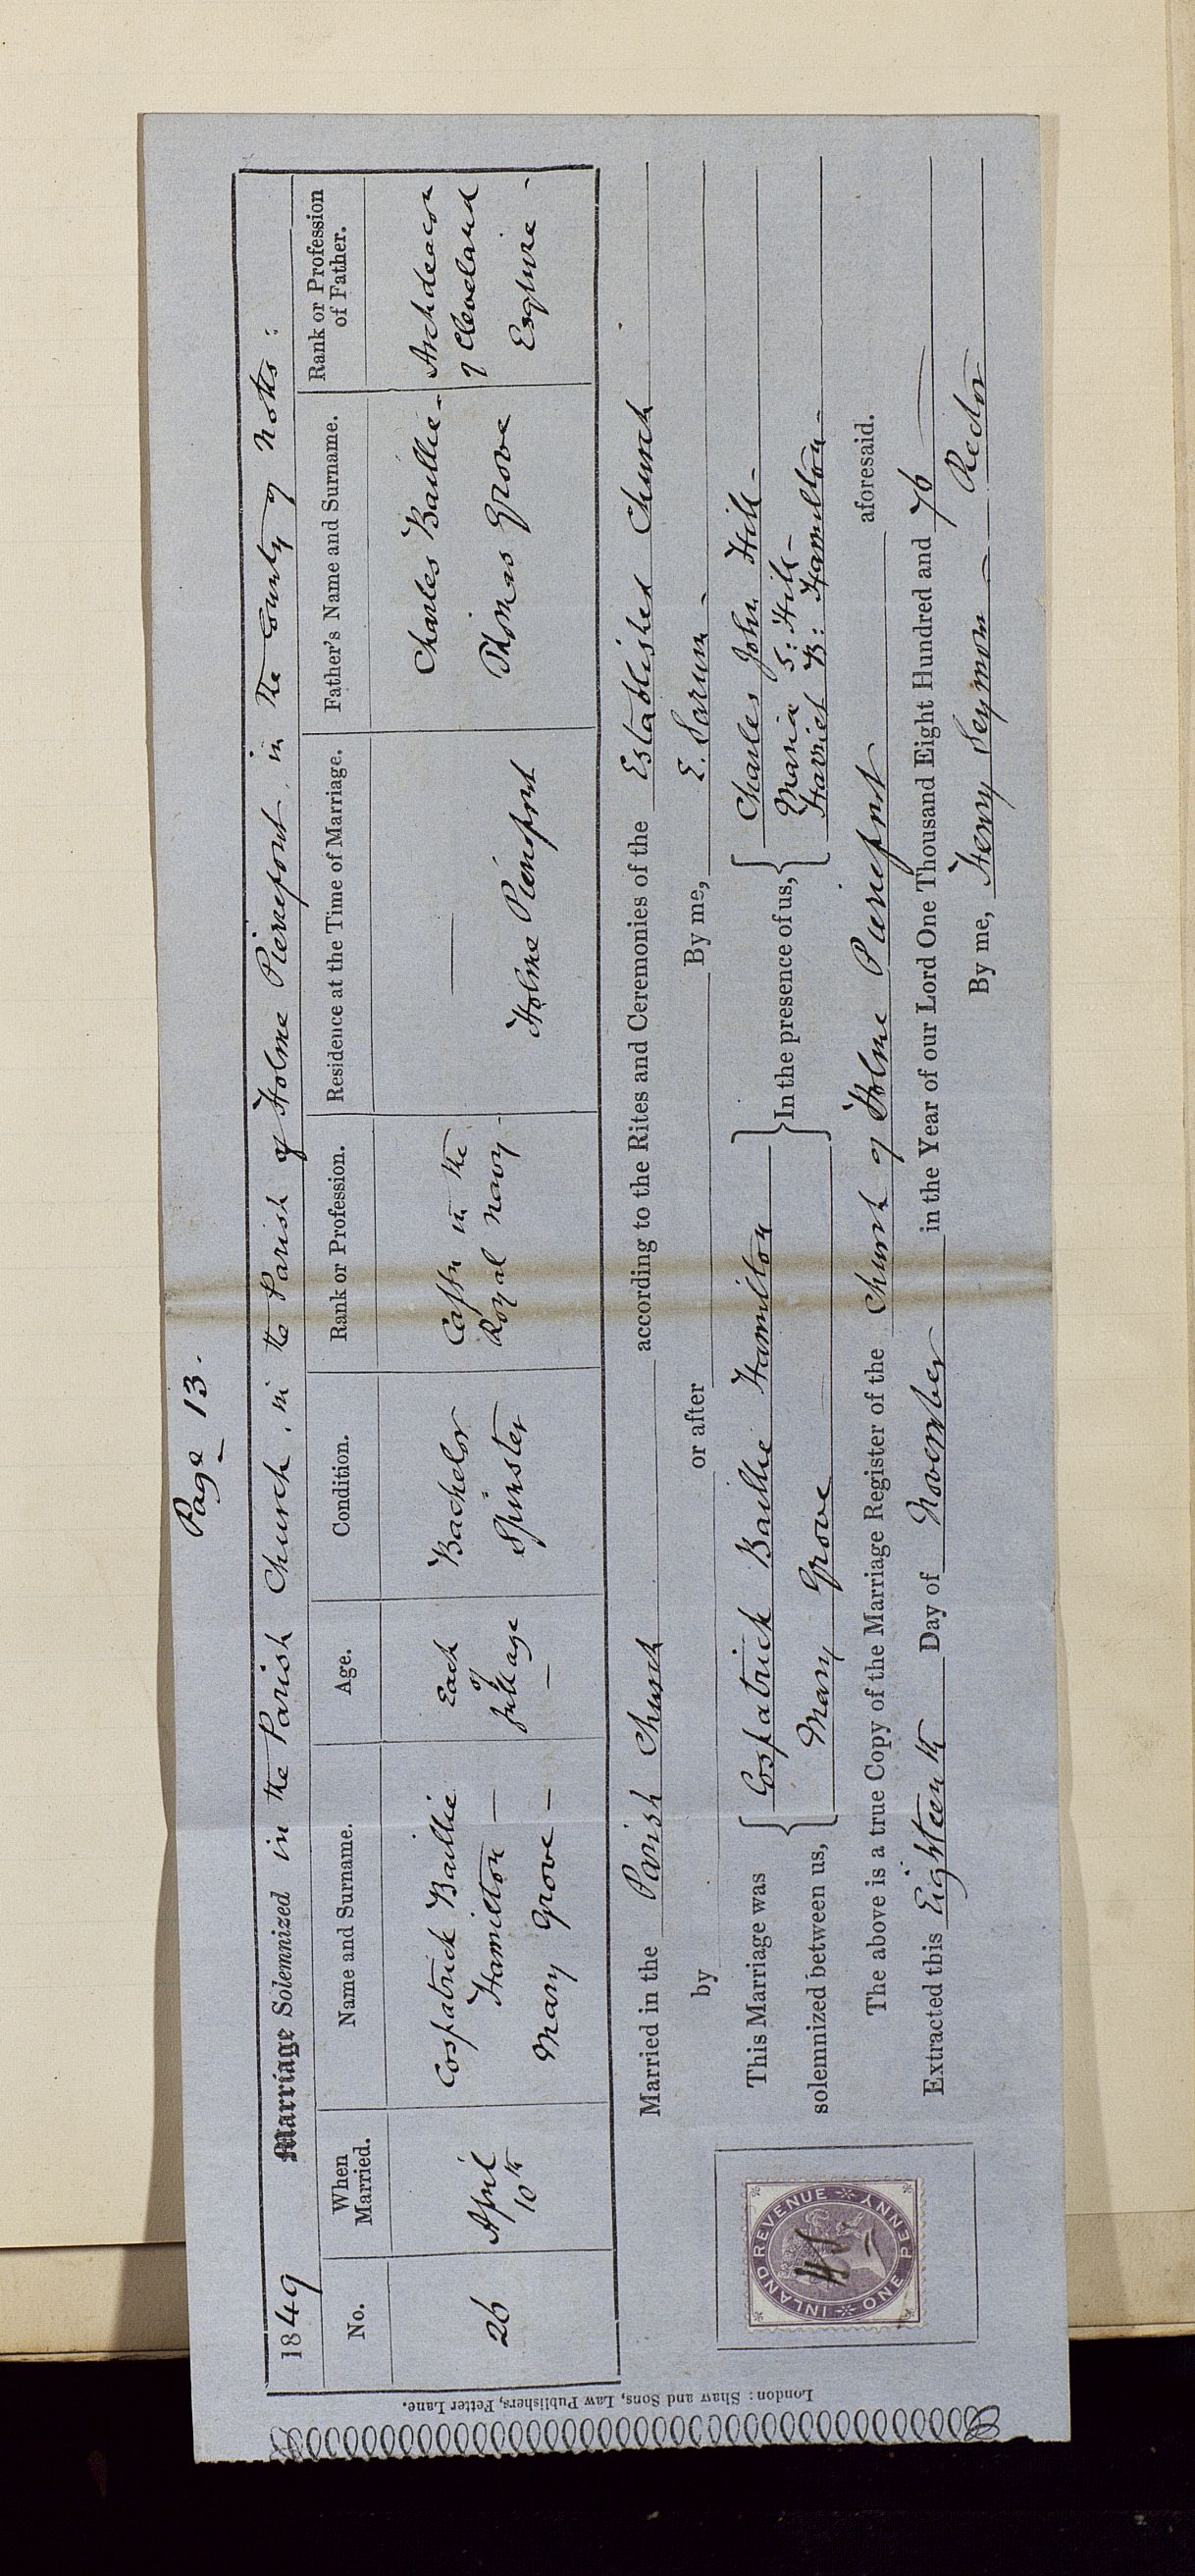 Page 13.
1849 Marriage Solemnized in the Parish Church, in the Parish of Holme Pierrepont, in the County of Notts:
No.
When Married.
Name and Surname.
Age.
Condition.
Rank or Profession.
Residence at the Time of Marriage.
Father's Name and Surname.
Rank or Profession of Father.
26
April
10th
Cospatrick Baillie
Hamilton —
Mary Grove —
Each
of
full age
—
Bachelor
Spinster
Captn in the
Royal Navy -
—
Holme Pierrepont
Charles Baillie -
Thomas Grove
Archdeacon
of Cleveland
Esquire -
Married in the Parish Church according to the Rites and Ceremonies of the Established Church
by or after By me, E. Sarum -
This Marriage was solemnized between us,
Cospatrick Baillie Hamilton
Mary Grove
In the presence of us,
Charles John Hill -
Maria S: Hill -
Harriet B: Hamilton -
The above is a true Copy of the Marriage Register of the Church of Holme Pierrepont aforesaid.
Extracted this Eighteenth Day of November in the Year of our Lord One Thousand Eight Hundred and 76
By me, Henry Seymour - Rector
INLAND REVENUE
ONE PENNY
HS
London: Shaw and Sons, Law Publishers, Fetter Lane.